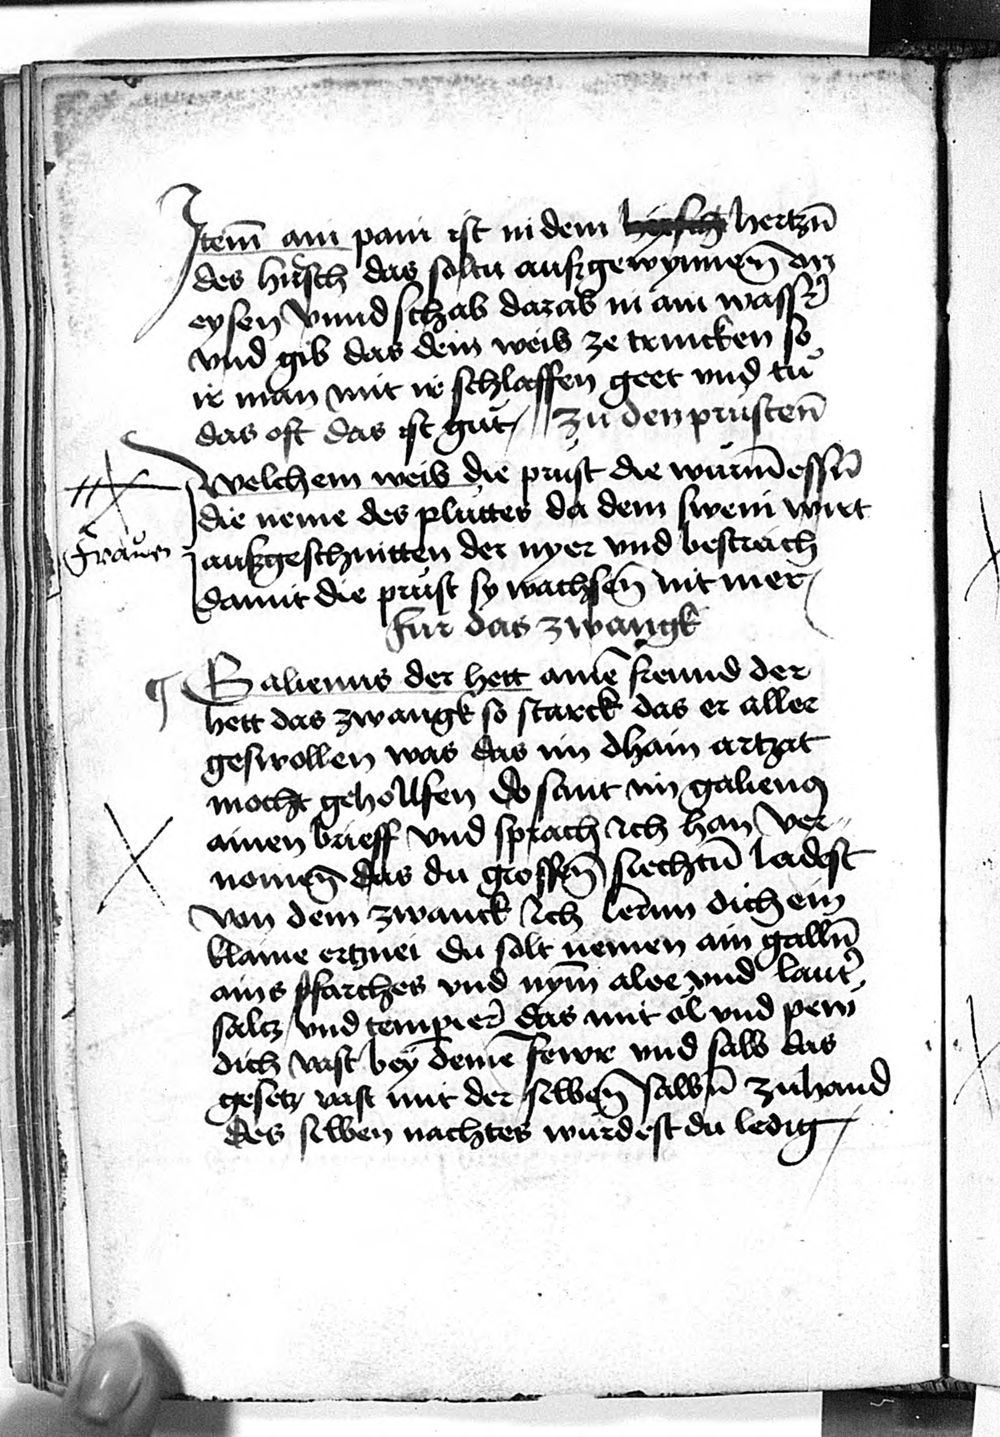 Item ain pain ist in dem hertzn̄
des hirsch das soltu außgewynnen̄ an
eysen Vnnd schab darab in ain wasser
vnd gib das dem weib ze trincken so
ir man mit ir schlaffen geet vnd tů
das oft das ist gůt / zu den prüsten̄
Welchem weib die prüst die würm̄ essn̄
Frauen
die neme des plüttes da dem swein wirt
außgeschnitten der nyer vnd bestreich
damit die prüst sy wachsen̄ nit mer
Für das zwangk
Galienus der hett aine freund der
hett das zwangk so starck das er aller
geswollen was das im dhain artzat
mocht gehollfen do sant im galienꝰ
ainen brieff vnd sprach Ich han ver-
nomen̄ das du grossen̄ siechtū leidest
von dem zwanck Ich lernn dich ein
klaine ertznei du solt nemen ain galln̄
ains pfarches vnd nym̄ aloe vnd lautꝰ
saltz vnd temperꝰ das mit öl vnd pein
dich vast bey deine fewr vnd salb das
gesetz vast mit der selben̄ salbn̄ zuhand
des selben nachtes würdest du ledig